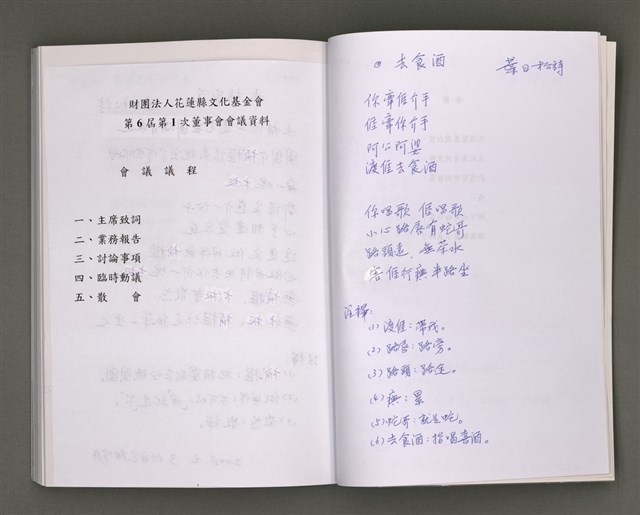 財團法人花蓮縣文化基金會
第6屆第1次董事會會議資料
會議議程
一、主席致詞
二、業務報告
三、討論事項
四、臨時動議
五、散 會
去食酒
葉日松詩
你牽𠊎介手
𠊎牽你介手
阿公阿婆
渡𠊎去食酒
你唱歌 𠊎唱歌
小心路唇有蛇哥
路頭遠 無茶水
害𠊎行 半路坐
注釋:
(1) 渡𠊎:帶我。
(2) 路唇:路旁。
(3) 路頭:路途。
(4) :累
(5) 蛇哥:就是蛇。
(6) 去食酒:指喝喜酒。